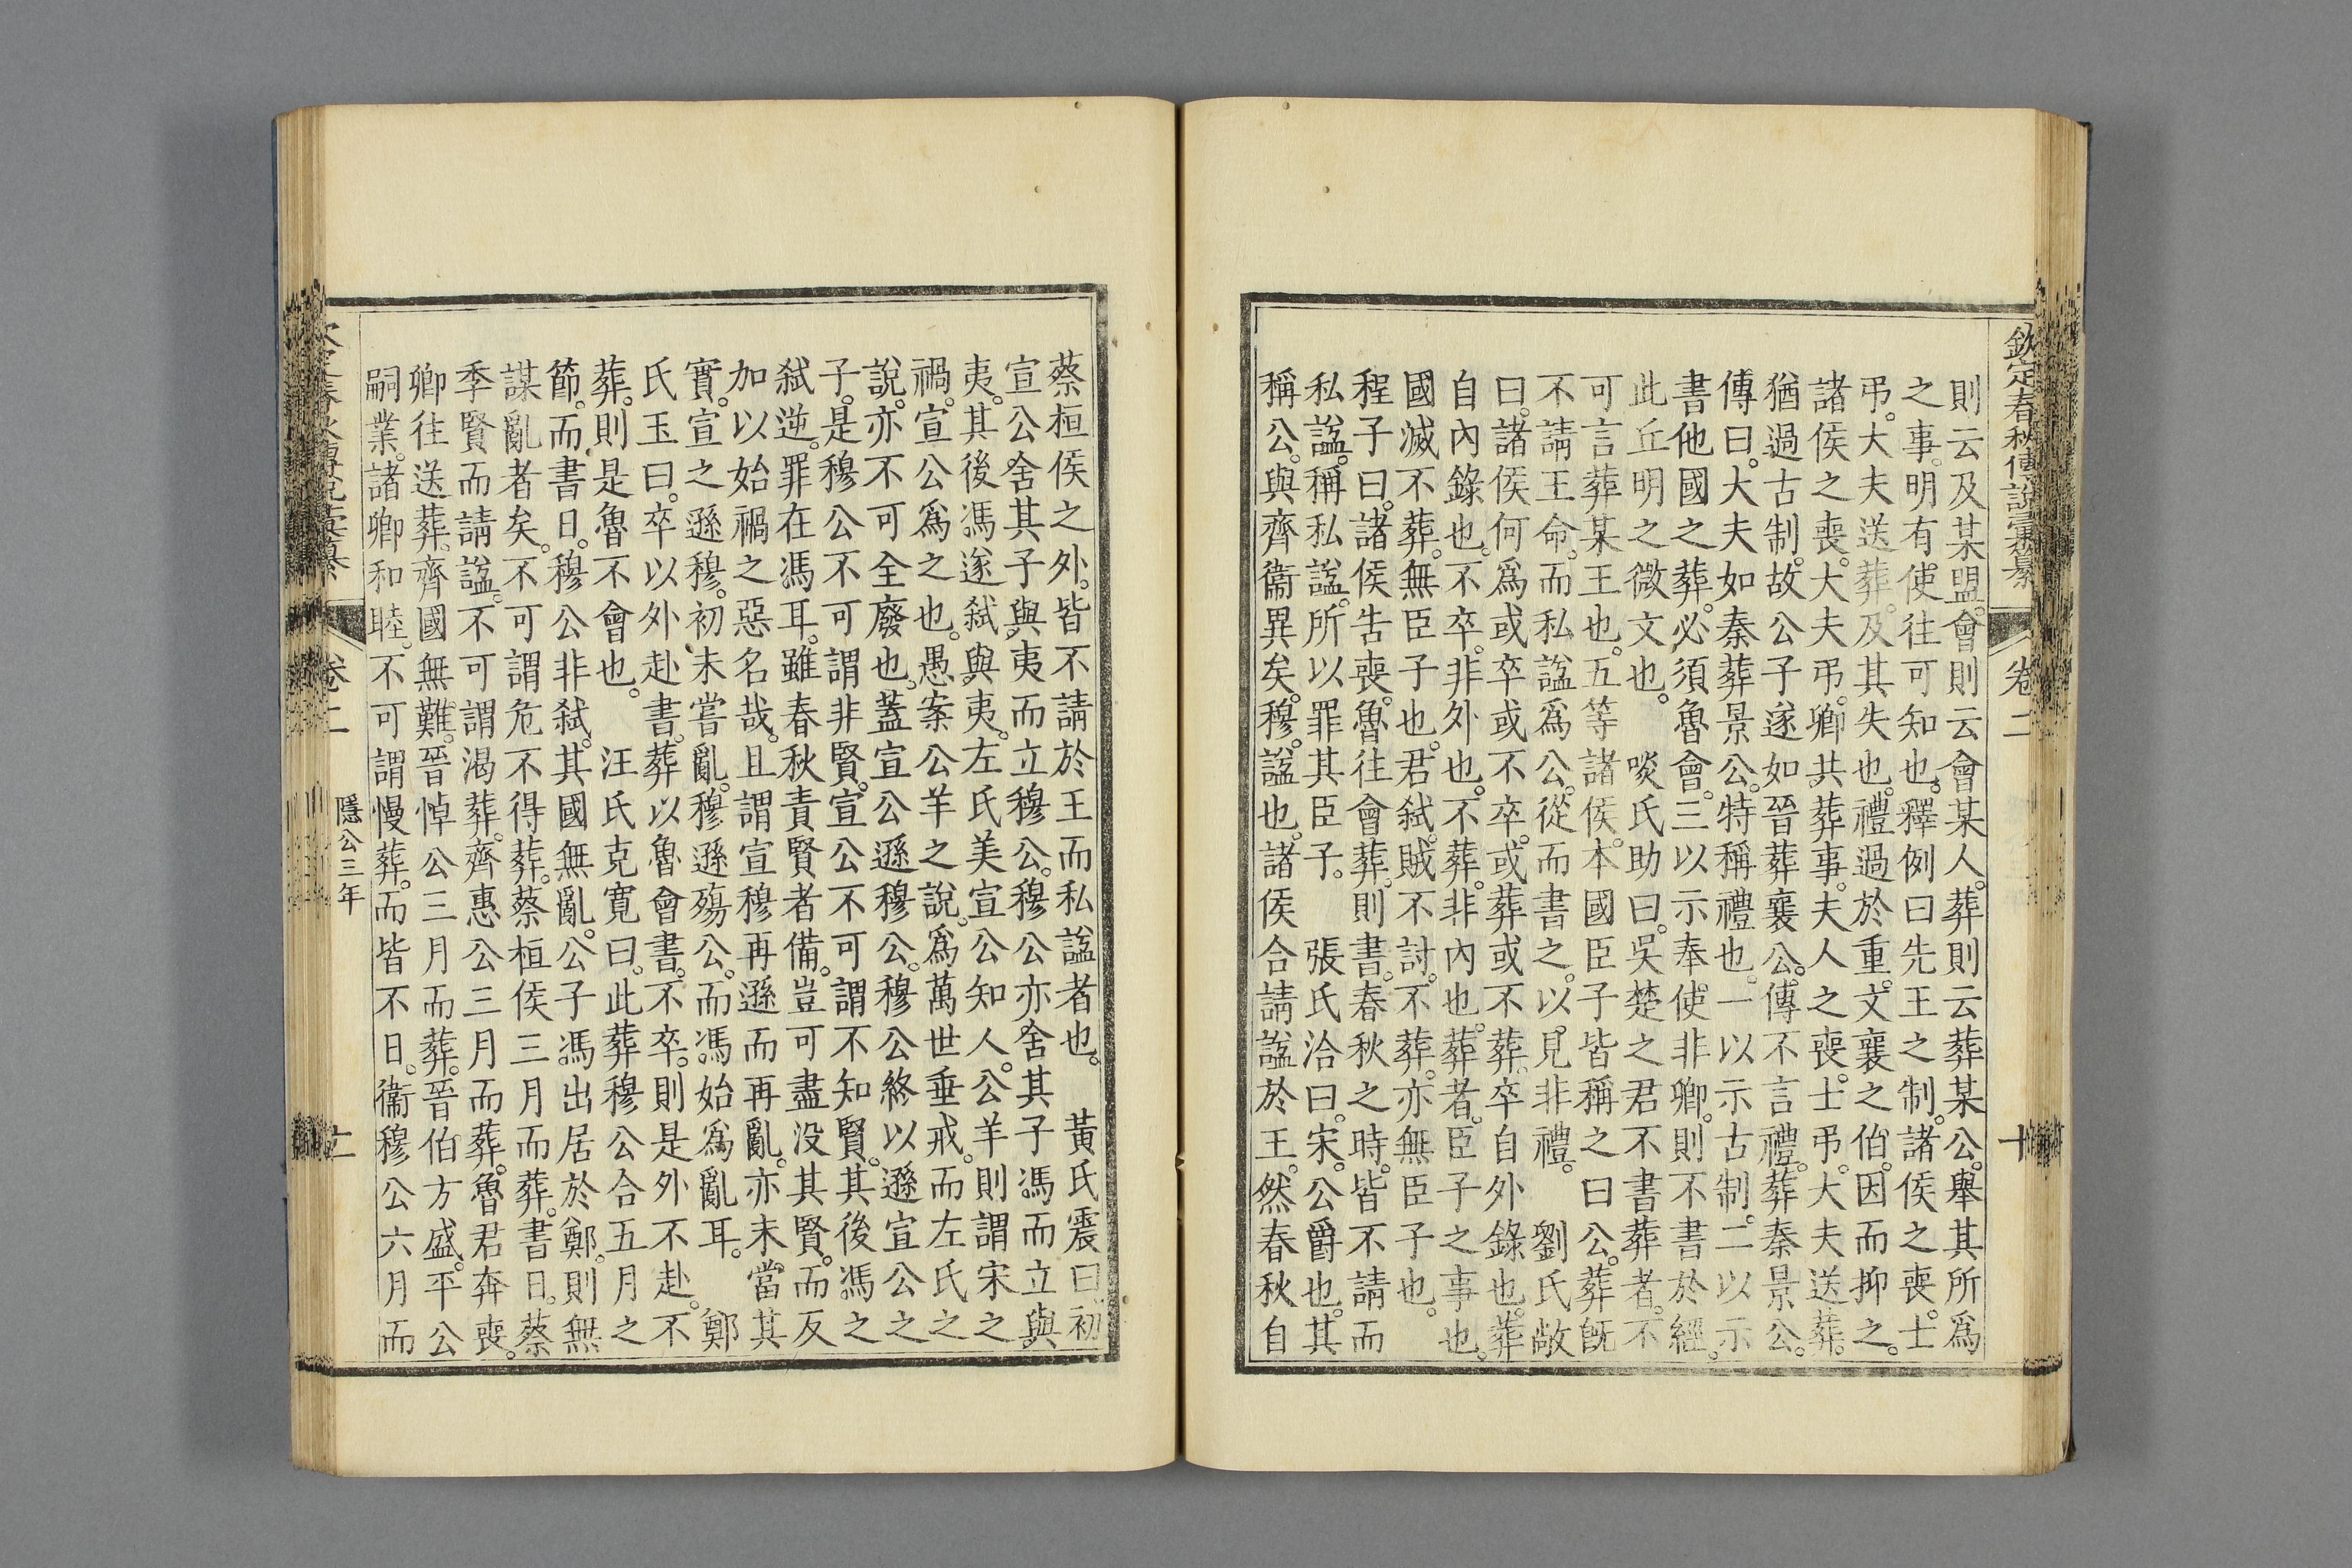 欽定春秋傳說彙纂 卷二 十
則云及某盟。會則云會某人。葬則云葬某公。舉其所爲
之事。明有使往可知也。釋例曰先王之制。諸侯之喪。士
弔。大夫送葬。及其失也。禮過於重。文襄之伯。因而抑之。
諸侯之喪。大夫弔。卿共葬事。夫人之喪。士弔。大夫送葬。
猶過古制。故公子遂如晉葬襄公。傳不言禮。葬秦景公。
傳曰。大夫如秦葬景公。特稱禮也。一以示古制。二以示
書他國之葬。必須魯會。三以示奉使非卿。則不書於經。
此丘明之微文也。　啖氏助曰。吳楚之君不書葬者。不
可言葬某王也。五等諸侯。本國臣子皆稱之曰公。葬旣
不請王命。而私諡爲公。從而書之。以見非禮。　劉氏敞
曰。諸侯何爲或卒或不卒。或葬或不葬。卒自外錄也。葬
自內錄也。不卒。非外也。不葬。非內也。葬者。臣子之事也。
國滅不葬。無臣子也。君弒。賊不討。不葬。亦無臣子也。
程子曰。諸侯告喪。魯往會葬。則書。春秋之時。皆不請而
私諡。稱私諡。所以罪其臣子。　張氏洽曰。宋。公爵也。其
稱公。與齊衞異矣。穆。諡也。諸侯合請諡於王。然春秋自
蔡桓侯之外。皆不請於王而私諡者也。　黃氏震曰初
宣公舍其子與夷而立穆公。穆公亦舍其子馮而立與
夷。其後馮遂弒與夷。左氏美宣公知人。公羊則謂宋之
禍。宣公爲之也。愚案公羊之說。爲萬世垂戒。而左氏之
說。亦不可全廢也。蓋宣公遜穆公。穆公終以遜宣公之
子。是穆公不可謂非賢。宣公不可謂不知賢。其後馮之
弒逆。罪在馮耳。雖春秋責賢者備。豈可盡没其賢。而反
加以始禍之惡名哉。且謂宣穆再遜而再亂。亦未當其
實。宣之遜穆。初未嘗亂。穆遜殤公。而馮始爲亂耳。　鄭
氏玉曰。卒以外赴書。葬以魯會書。不卒。則是外不赴。不
葬。則是魯不會也。　汪氏克寬曰。此葬穆公合五月之
節。而書日。穆公非弒。其國無亂。公子馮出居於鄭。則無
謀亂者矣。不可謂危不得葬。蔡桓侯三月而葬。書日。蔡
季賢而請諡。不可謂渴葬。齊惠公三月而葬。魯君奔喪。
卿往送葬。齊國無難。晉悼公三月而葬。晉伯方盛。平公
嗣業。諸卿和睦。不可謂慢葬。而皆不日。衞穆公六月而
卷二 隱公三年